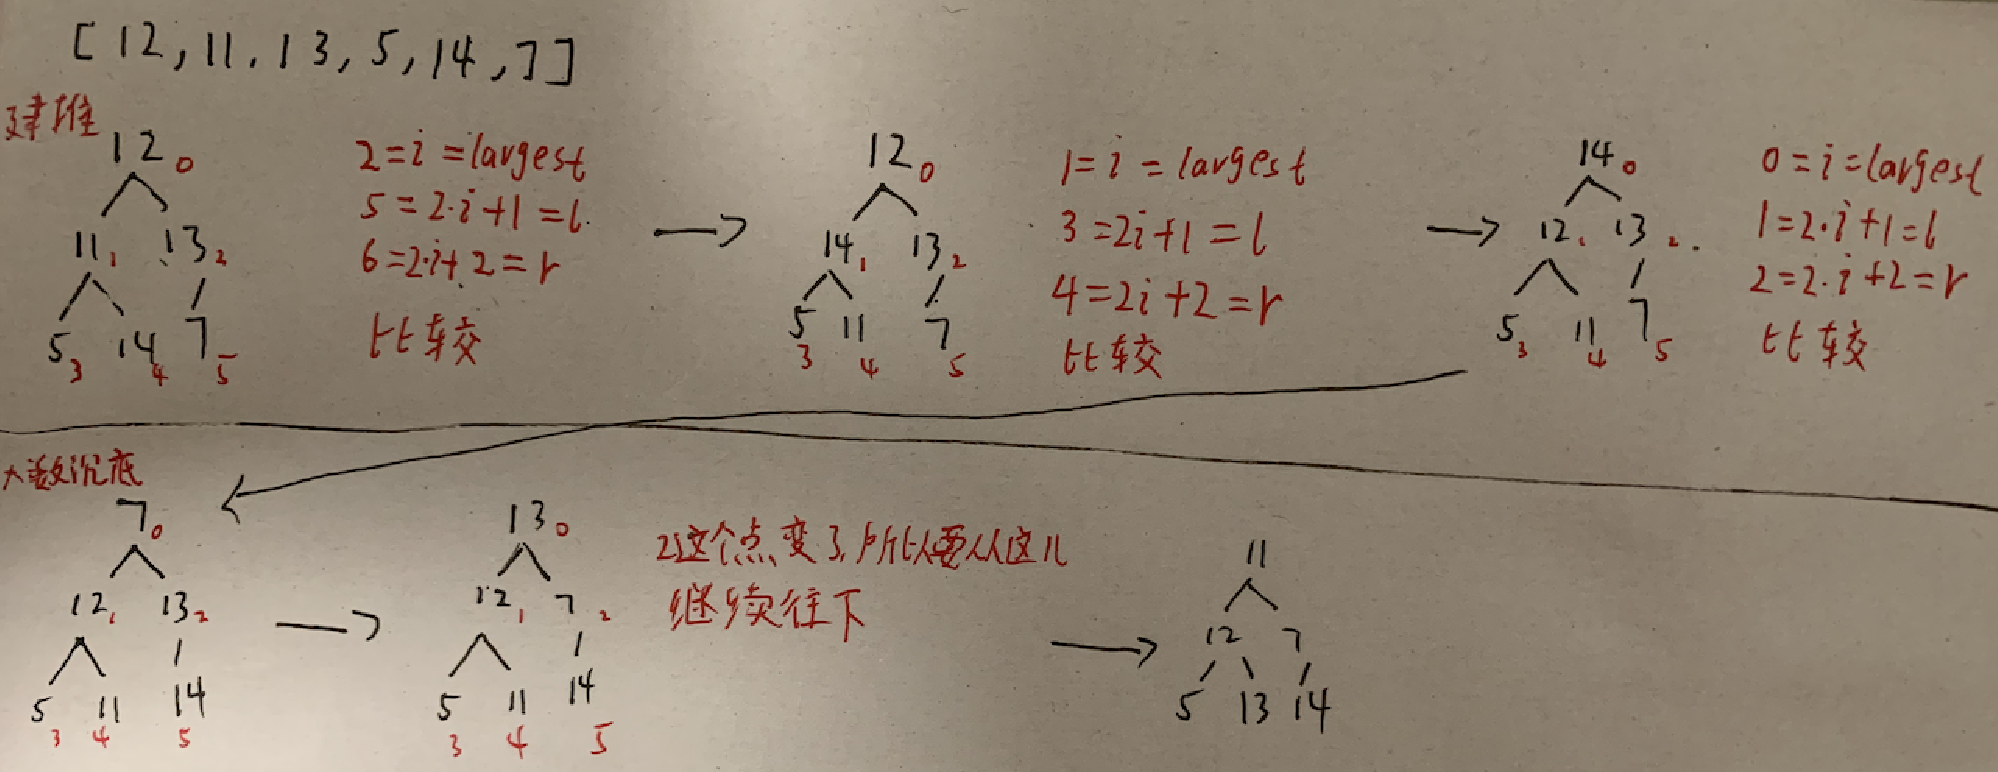 [12,11,13,5,14,7]
建堆
12 0
11 1 13 2
5 3 14 4 7 5
2=i=largest
5=2·i+1=l
6=2·i+2=r
比较
12 0
14 1 13 2
5 3 11 4 7 5
1=i=largest
3=2i+1=l
4=2i+2=r
比较
14 0
12 1 13 2
5 3 11 4 7 5
0=i=largest
1=2·i+1=l
2=2·i+2=r
比较
大数沉底
7 0
12 1 13 2
5 3 11 4 14 5
13 0
12 1 7 2
5 3 11 4 14 5
2这个点变了,所以要从这儿
继续往下
11
12 7
5 13 14